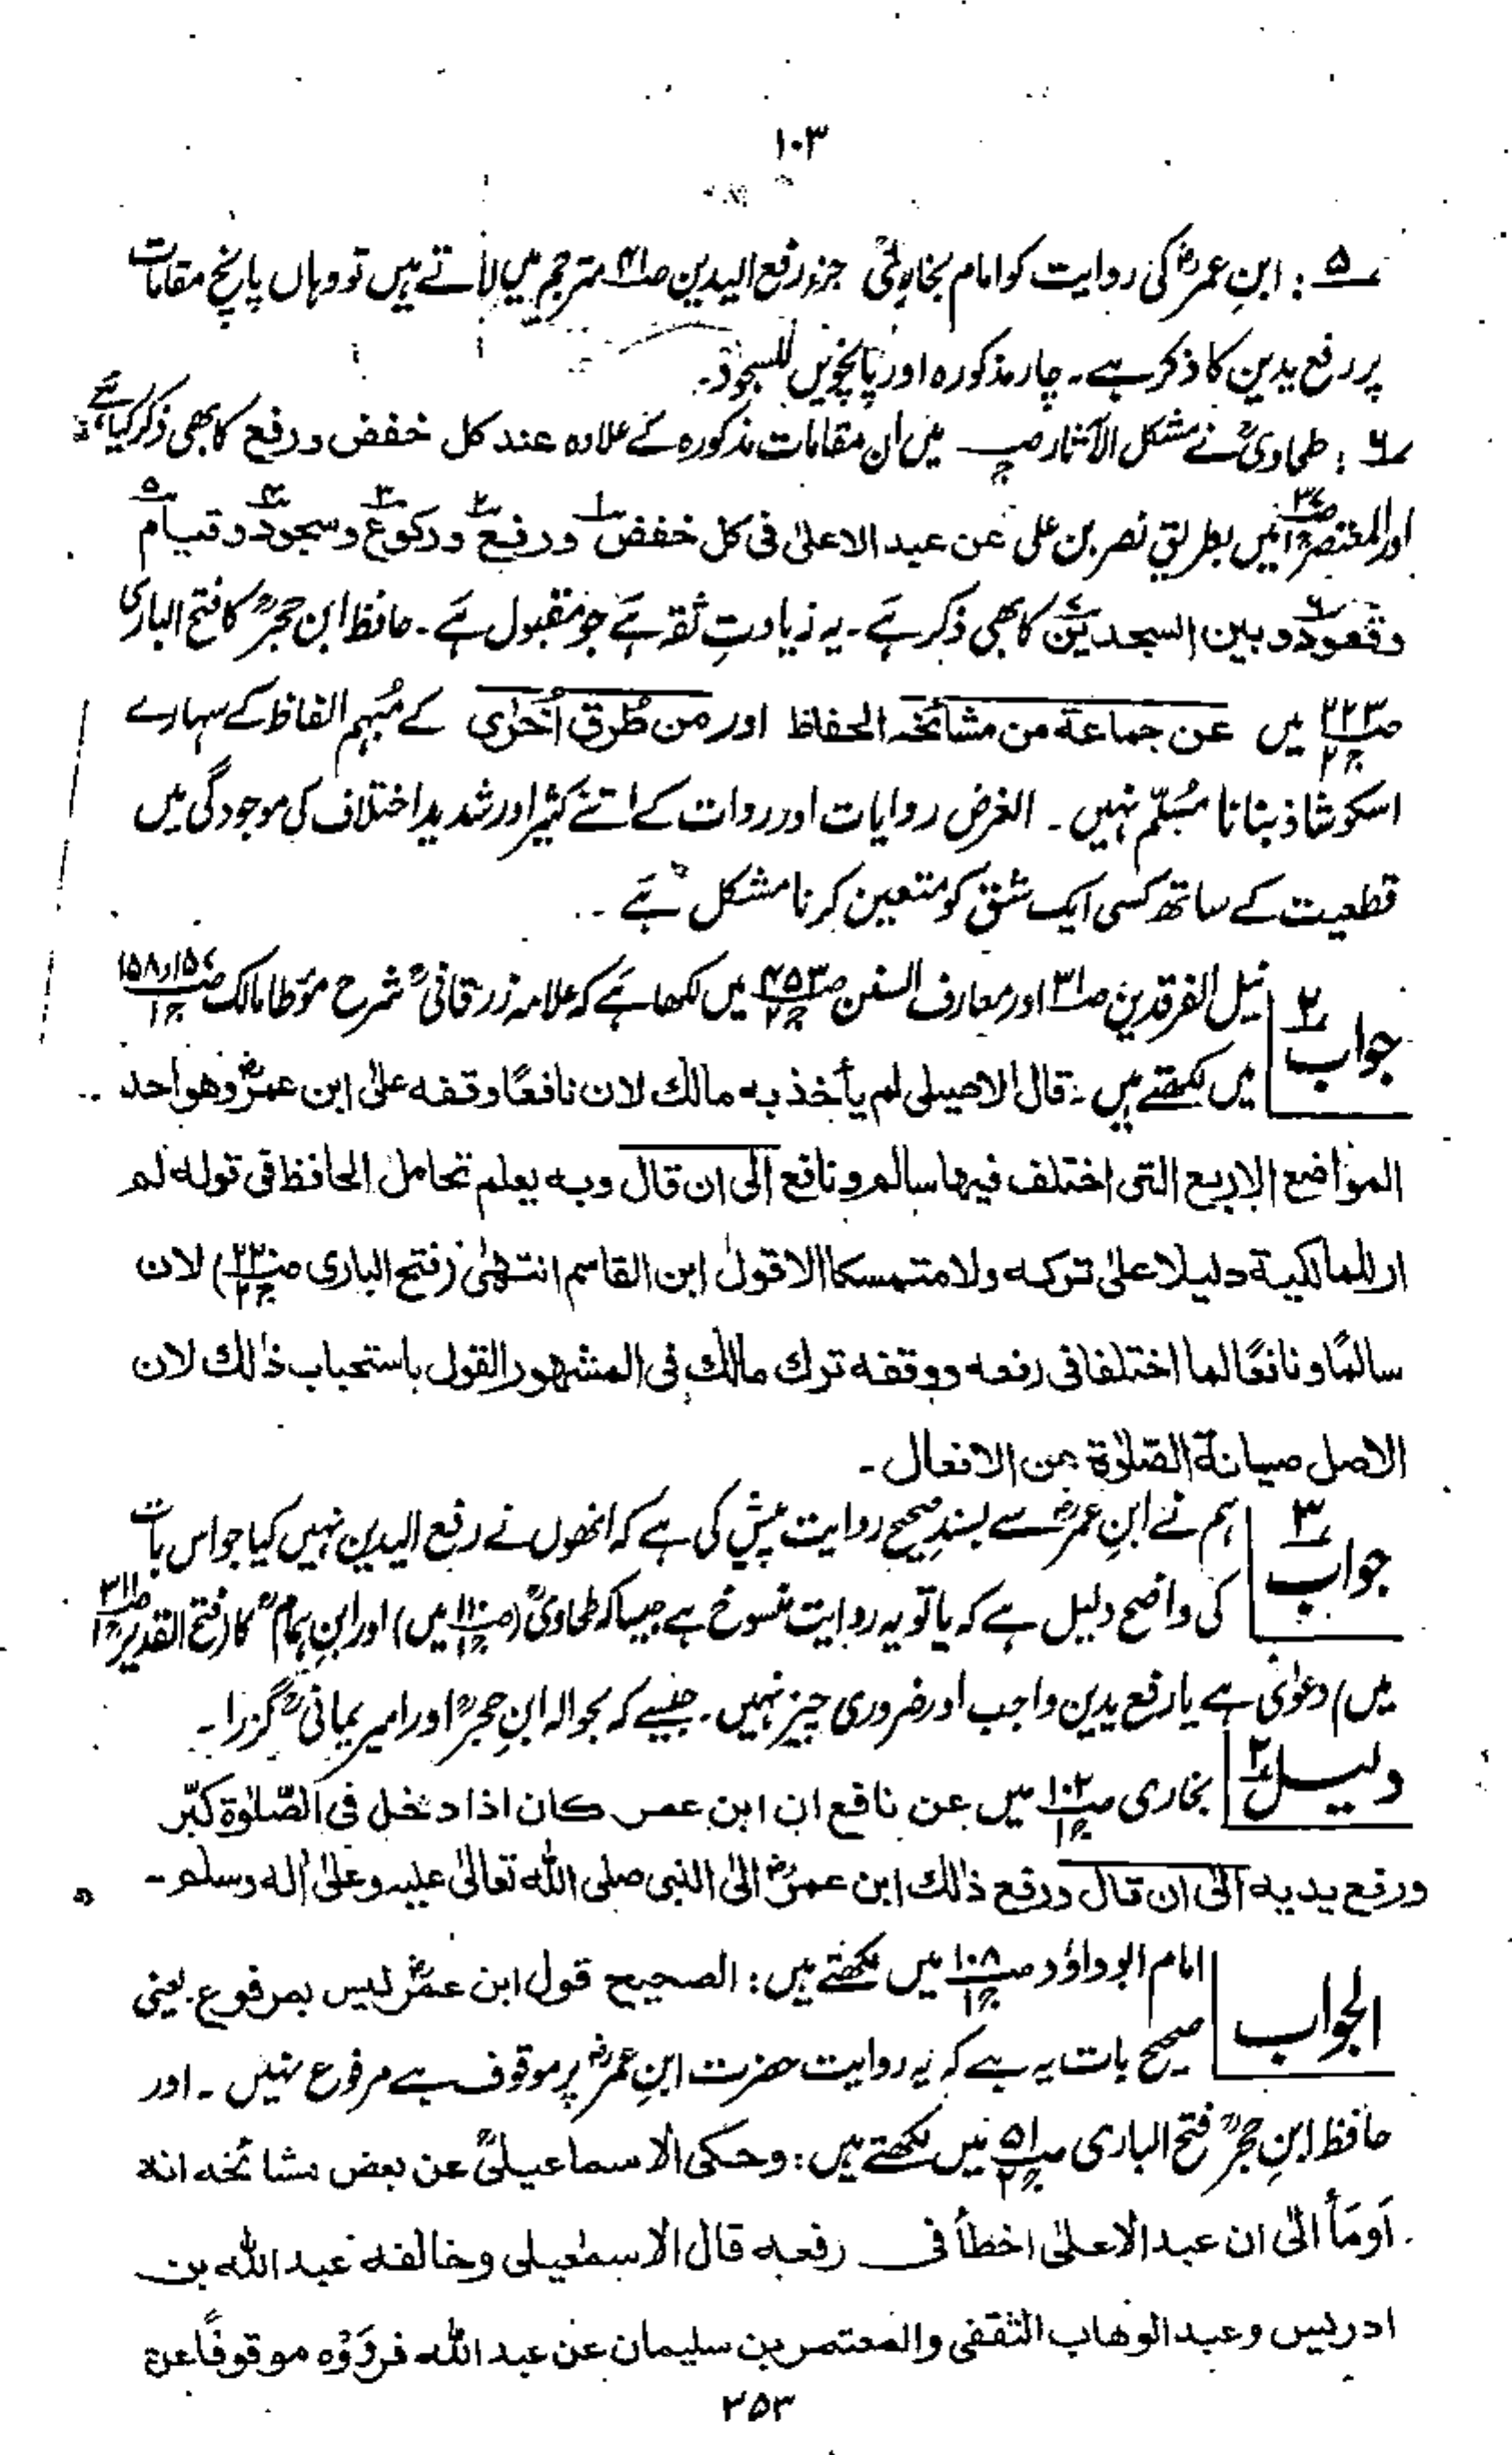 ۱۰۳
۵ : ابنِ عمرؓ کی روایت کو امام بخاریؒ جزء رفع الیدین ص۴۱ مترجم میں لاتے ہیں تو وہاں پانچ مقامات
پر رفع یدین کا ذکر ہے۔ چار مذکورہ اور پانچویں للسجود۔
۶ : طحاویؒ نے مشکل الآثار میں ان مقامات مذکورہ کے علاوہ عند کل خفض و رفع کا بھی ذکر کیا ہے
اور المعتصر ص۳۷ ج۱ میں بطریق نصر بن علی عن عبد الاعلیٰ فی کل خفض۱ ورفع۲ ورکوع۳ وسجود۴ وقیام۵
وقعود۶ وبین السجدتین۷ کا بھی ذکر ہے۔ یہ زیادتِ ثقہ ہے جو مقبول ہے۔ حافظ ابن حجرؒ کا فتح الباری
ص۲۲۳ ج۲ میں عن جماعة من مشائخہ الحفاظ اور من طُرق اُخرٰی کے مُبہم الفاظ کے سہارے
اسکو شاذ بنانا مُسلّم نہیں۔ الغرض روایات اور روات کے اتنے کثیر اور شدید اختلاف کی موجودگی میں
قطعیت کے ساتھ کسی ایک شق کو متعین کرنا مشکل ہے۔
جواب ۲ نیل الفرقدین ص۳۱ اور معارف السنن ص۴۵۳ ج۲ میں لکھا ہے کہ علامہ زرقانیؒ شرح مؤطا مالک ص۱۵۷ و ۱۵۸ ج۱
میں لکھتے ہیں :۔ قال الاصیلی لم یأخذ به مالك لان نافعًا وقفه علیٰ ابن عمرؓ وھو احد
المواضع الاربع التی اختلف فیھا سالم و نافع الیٰ ان قال وبه یعلم تحامل الحافظ فی قوله لم
ار للمالکیة دلیلا علیٰ ترکه ولا متمسکا الا قول ابن القاسم انتھیٰ (فتح الباری ص۲۲۰ ج۲) لان
سالمًا و نافعًا لما اختلفا فی رفعه ووقفه ترك مالك فی المشھور القول باستحباب ذٰلك لان
الاصل صیانة الصّلوٰة من الافعال۔
جواب ۳ ہم نے ابنِ عمرؓ سے بسندِ صحیح روایت پیش کی ہے کہ انھوں نے رفع الیدین نہیں کیا جو اس بات
کی واضح دلیل ہے کہ یا تو یہ روایت منسوخ ہے جیسا کہ طحاویؒ (ص۱۱۰ ج۱ میں) اور ابنِ ہمامؒ کا (فتح القدیر ص۳۱۱ ج۱
میں) دعوٰی ہے یا رفع یدین واجب اور ضروری چیز نہیں۔ جیسے کہ بحوالہ ابنِ حجرؒ اور امیر یمانیؒ گزرا۔
دلیل ۲ بخاری ص۱۰۲ ج۱ میں عن نافع ان ابن عمر کان اذا دخل فی الصّلوٰة کبّر
ورفع یدیه الیٰ ان قال ورفع ذٰلك ابن عمرؓ الیٰ النبی صلی الله تعالیٰ علیه وعلیٰ اٰله وسلم۔
الجواب امام ابوداؤد ص۱۰۸ ج۱ میں لکھتے ہیں : الصحیح قول ابن عمرؓ لیس بمرفوع۔ یعنی
صحیح بات یہ ہے کہ یہ روایت حضرت ابنِ عمرؓ پر موقوف ہے مرفوع نہیں۔ اور
حافظ ابنِ حجرؒ فتح الباری ص۵۱ ج۲ میں لکھتے ہیں : وحکی الاسماعیلیؒ عن بعض مشائخه انه
اَومَأ الیٰ ان عبد الاعلیٰ اخطأ فی رفعه قال الاسمٰعیلی وخالفه عبد الله بن
ادریس وعبد الوھاب الثقفی والمعتمر بن سلیمان عن عبد الله فرَوَوْه موقوفًا عن
۲۵۳